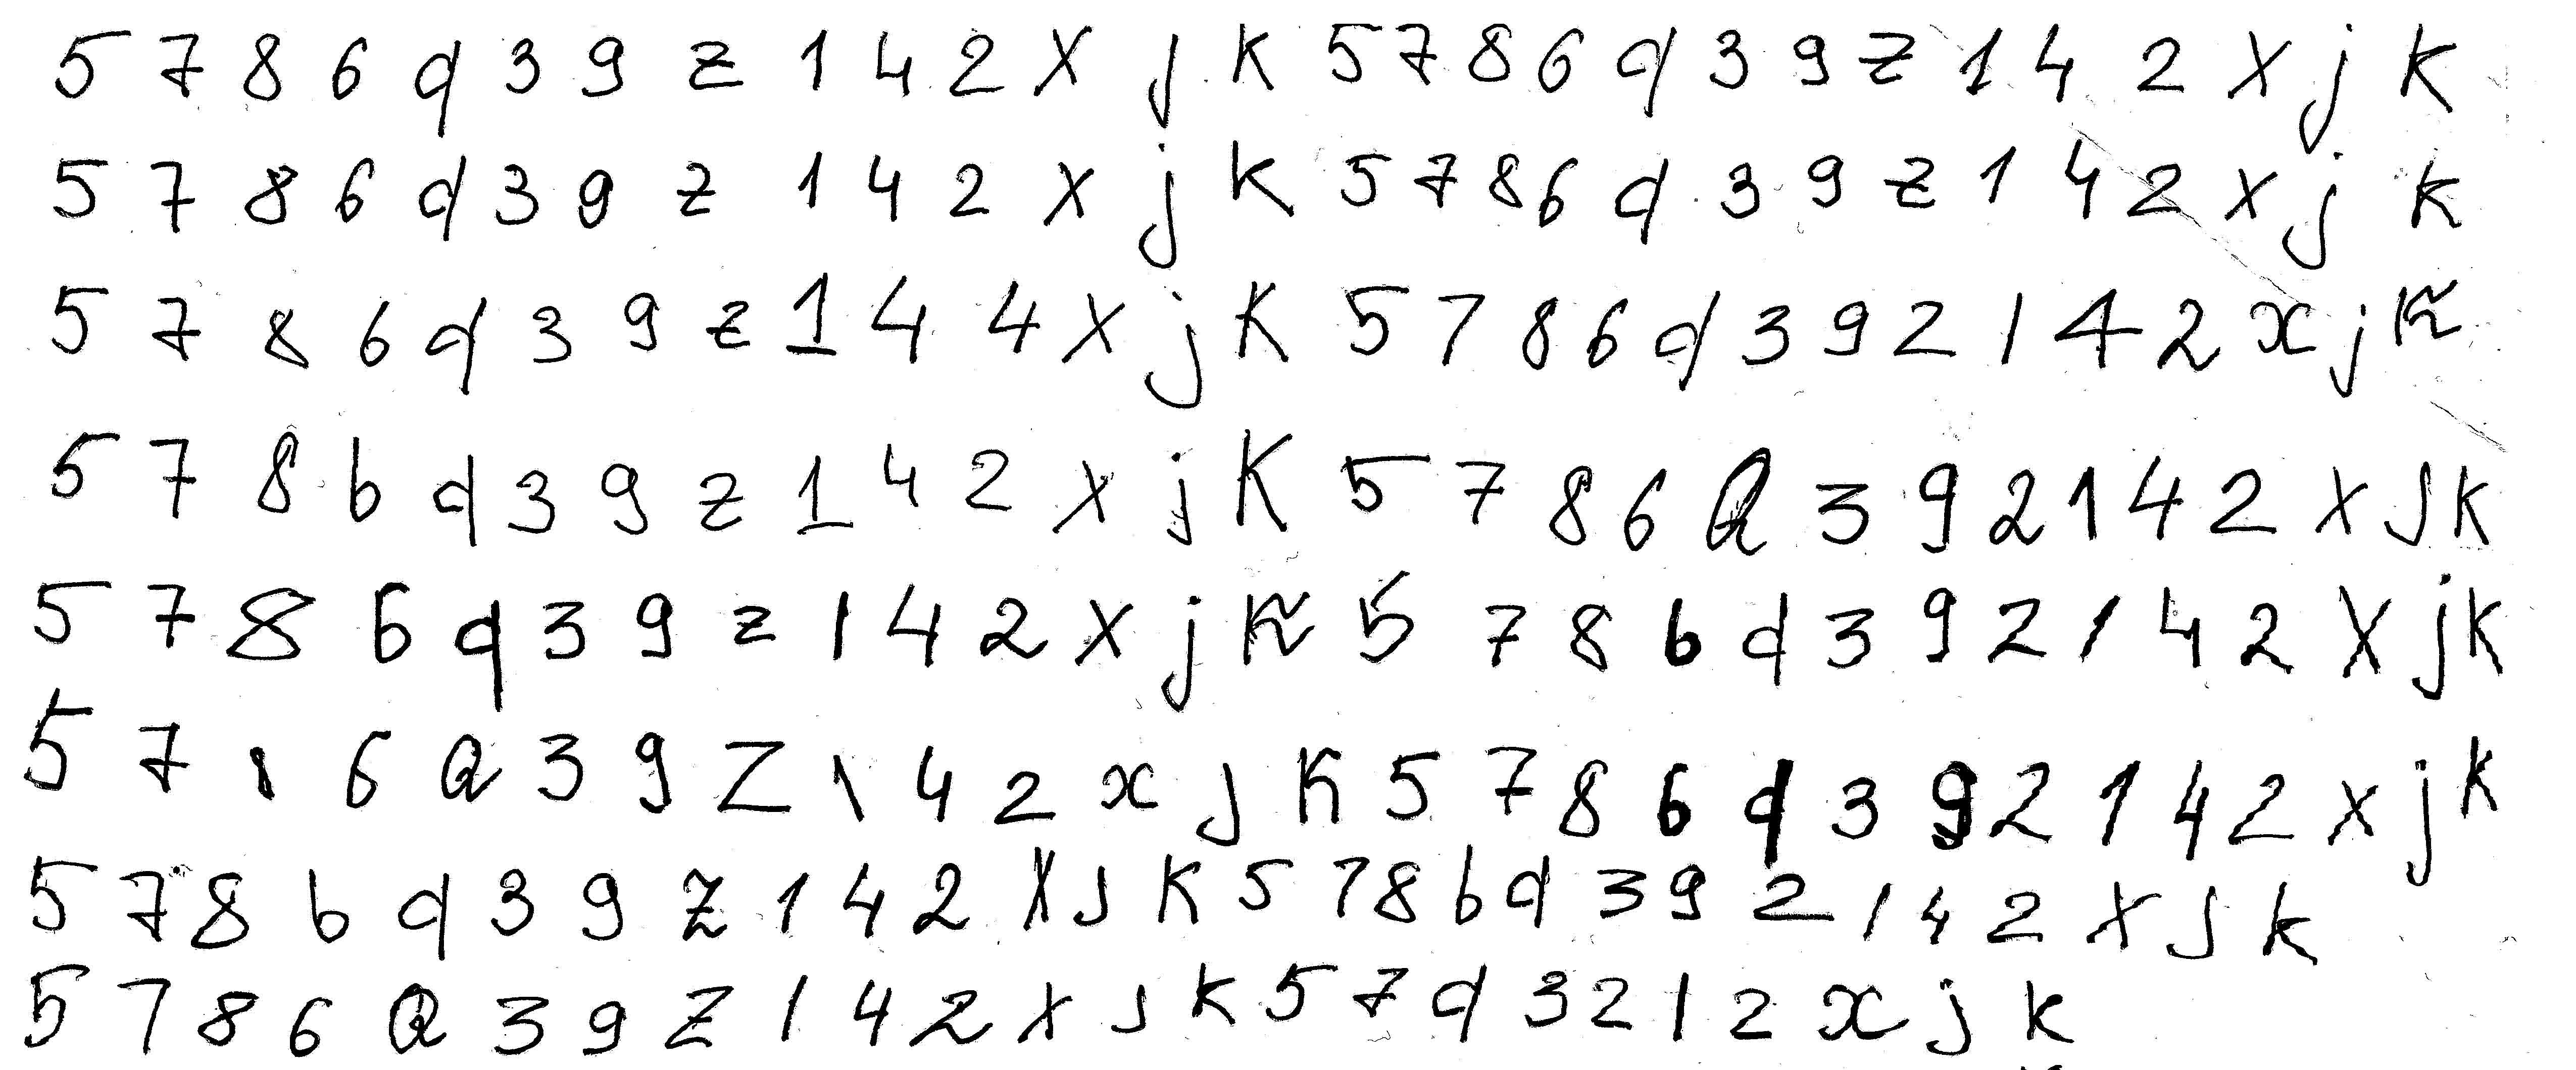 5 7 8 6 q 3 9 z 1 4 2 x j k 5 7 8 6 q 3 9 z 1 4 2 x j k
5 7 8 6 q 3 9 z 1 4 2 x j k 5 7 8 6 q 3 9 z 1 4 2 x j k
5 7 8 6 q 3 9 z 1 4 4 x j k 5 7 8 6 q 3 9 z 1 4 2 x j k
5 7 8 b q 3 9 z 1 4 2 x j k 5 7 8 6 Q 3 9 2 1 4 2 x J k
5 7 8 6 q 3 9 z 1 4 2 x j k 5 7 8 6 q 3 9 2 1 4 2 x j k
5 7 1 6 Q 3 9 Z 1 4 2 x J k 5 7 8 6 q 3 9 2 1 4 2 x j k
5 7 8 b q 3 9 z 1 4 2 x J k 5 7 8 b q 3 9 2 1 4 2 x J k
5 7 8 6 Q 3 9 z 1 4 2 x J k 5 7 q 3 2 1 2 x j k